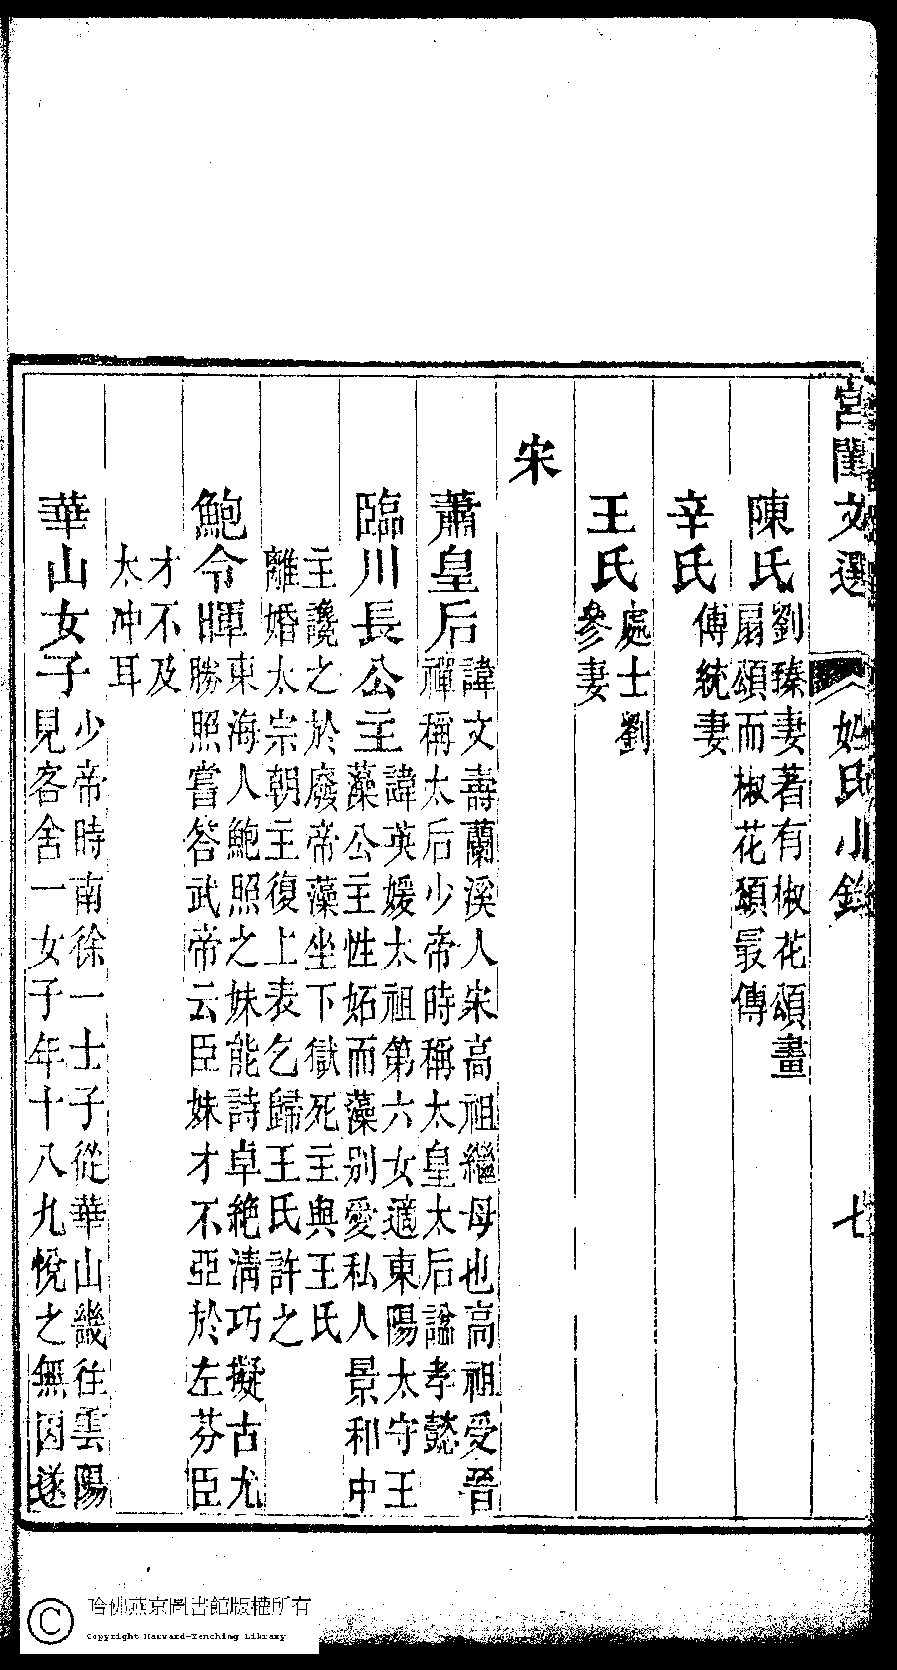 宮閨文選　姓氏小錄　七
陳氏劉臻妻著有椒花頌畫
扇頌而椒花頌最傳
辛氏傅統妻
王氏處士劉
參妻
宋
蕭皇后諱文壽蘭溪人宋高祖繼母也高祖受晉
禪稱太后少帝時稱太皇太后諡孝懿
臨川長公主諱英媛太祖第六女適東陽太守王
藻公主性妬而藻別愛私人景和中
主讒之於廢帝藻坐下獄死主與王氏
離婚太宗朝主復上表乞歸王氏許之
鮑令暉東海人鮑照之妹能詩卓絶清巧擬古尤
勝照嘗答武帝云臣妹才不亞於左芬臣
才不及
太冲耳
華山女子少帝時南徐一士子從華山畿往雲陽
見客舍一女子年十八九悅之無因遂
哈佛燕京圖書館版權所有
Copyright Harvard-Yenching Library